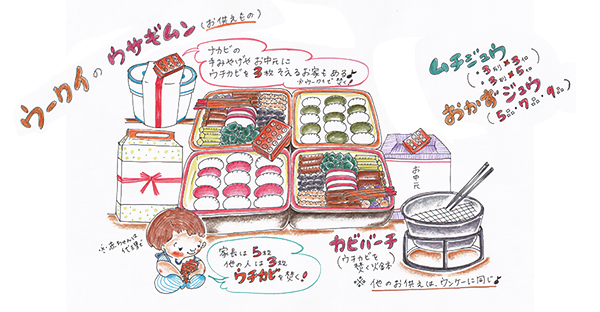 ウークイの ウサギムン (お供えもの)
ナカビの
手みやげや お中元に
ウチカビを 3枚 そえるお家も ある♪
ムチジュウ
(・3列×3位
・3列×5位)
おかずジュウ
(5品・7品・9品)
お中元
家長は 5枚
他の人は 3枚
ウチカビを 焚く!
カビバーチ
(ウチカビを
焚く火鉢)
※ 他のお供えは、ウンケーに同じ♪